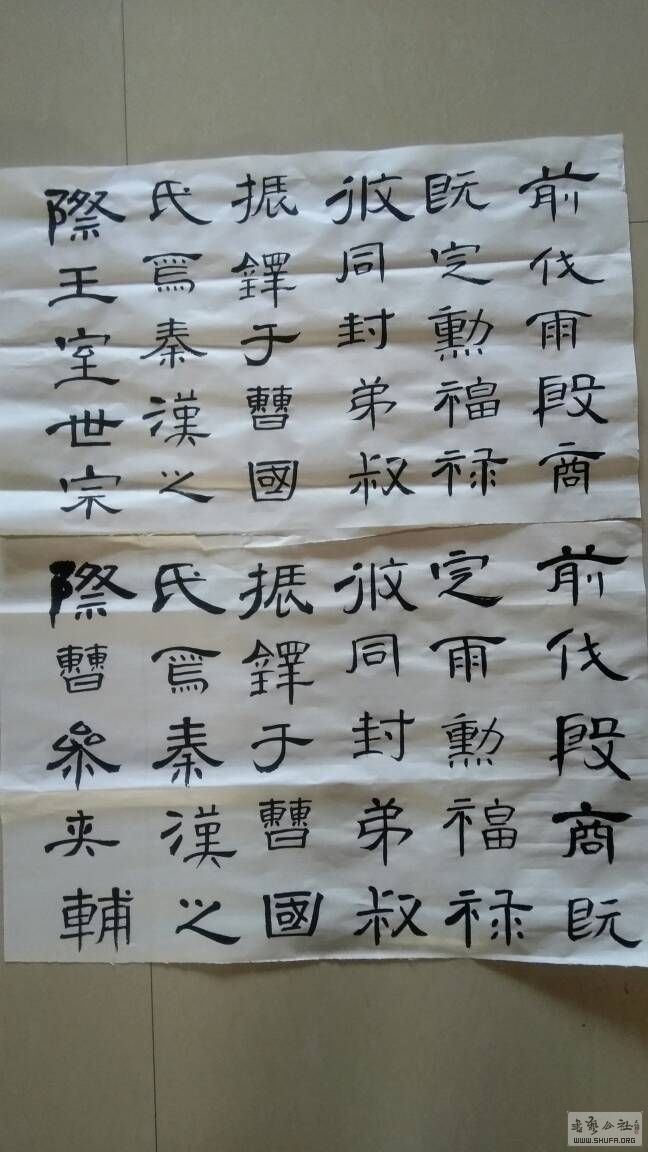 前伐雨殷商
既定勳福禄
攸同封弟叔
振鐸于曹國
氏焉秦漢之
際王室世宗
前伐殷商既
定雨勳福禄
攸同封弟叔
振鐸于曹國
氏焉秦漢之
際曹參夾輔
书藝公社
WWW.SHUFA.ORG